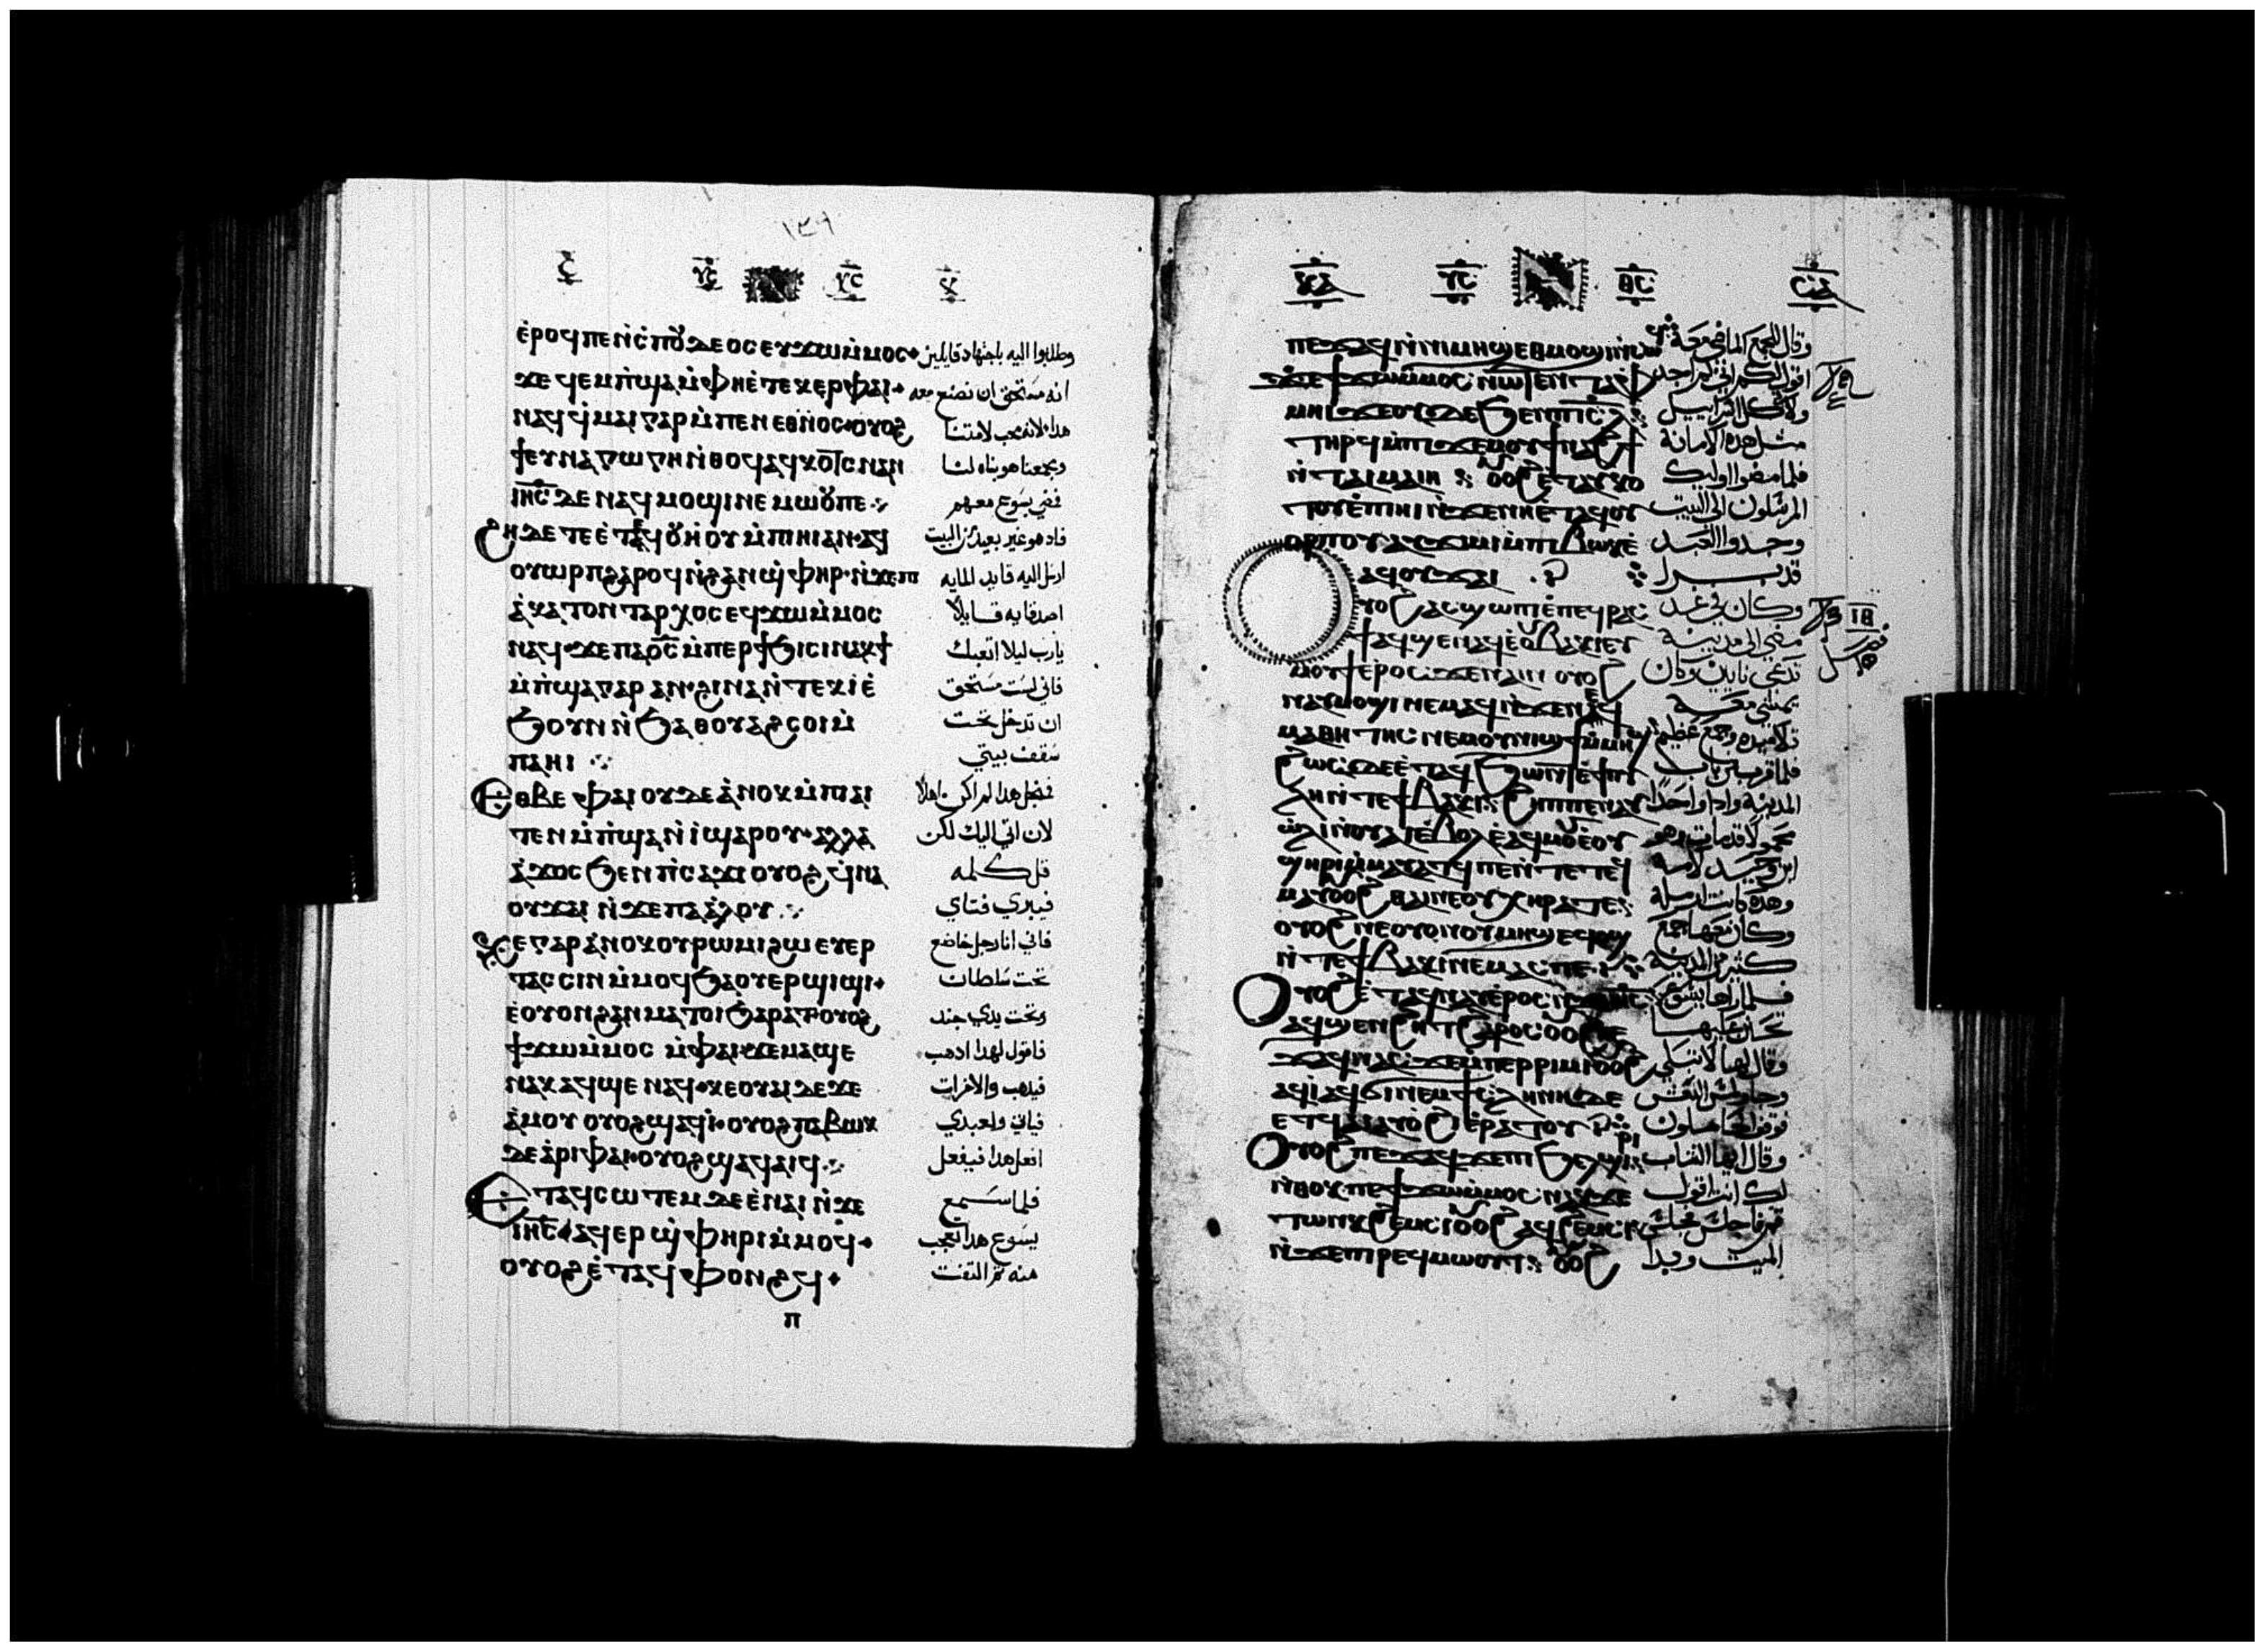 ١٣٩
ⲉ̀ⲣⲟϥ ⲡⲉ ⲛ̀ⲥⲡⲟⲩⲇⲉⲟⲥ ⲉⲩϫⲱ ⲙ̀ⲙⲟⲥ وطلبوا اليه باجتهاد قايلين
ϫⲉ ϥⲉⲙⲡ̀ϣⲁ ⲙ̀ⲫⲏ ⲉ̀ⲧⲉⲕⲉⲣ ⲫⲁⲓ انه مستحق ان تصنع معه
ⲛⲁϥ ϥⲙⲉⲓ ⲅⲁⲣ ⲙ̀ⲡⲉⲛⲉⲑⲛⲟⲥ ⲟⲩⲟϩ هدا لانه محب لامتنا
ϯⲕⲉⲩⲛⲁⲅⲱⲅⲏ ⲛ̀ⲑⲟϥ ⲁϥⲕⲟⲧⲥ ⲛⲁⲛ ومجمعنا هو بناه لنا
ⲓⲏⲥ ⲇⲉ ⲛⲁϥⲙⲟϣⲓ ⲛⲉⲙⲱⲟⲩ ⲡⲉ فمضي يسوع معهم
ϩⲏⲇⲉ ⲧⲉ ⲉ̀ⲧⲁϥⲟⲩⲏⲟⲩ ⲙ̀ⲡⲓⲏⲓ ⲁⲛ ⲁϥ فاد هو غير بعيد من البيت
ⲟⲩⲱⲣⲡ ϩⲁⲣⲟϥ ⲛ̀ϩⲁⲛϣ̀ⲫⲏⲣ ⲛ̀ϫⲉ ⲡ ارسل اليه قايد المايه
ⲉ̀ⲕⲁⲧⲟⲛⲧⲁⲣⲭⲟⲥ ⲉϥϫⲱ ⲙ̀ⲙⲟⲥ اصدقايه قايلا
ⲛⲁϥ ϫⲉ ⲡⲁⲟ̅ⲥ̅ ⲙ̀ⲡⲉⲣϯϧⲓⲥⲓ ⲛⲁⲕ ϯ يارب ليلا اتعبك
ⲙ̀ⲡ̀ϣⲁ ⲅⲁⲣ ⲁⲛ ϩⲓⲛⲁ ⲛ̀ⲧⲉⲕⲓ̀ ⲉ̀ فاني لست مستحق
ϧⲟⲩⲛ ⲛ̀ϧⲁ ⲑⲟⲩⲁϩⲥⲟⲓ ⲙ̀ ان تدخل تحت
ⲡⲁⲏⲓ سقف بيتي
ⲉⲑⲃⲉ ⲫⲁⲓ ⲟⲩⲇⲉ ⲁ̀ⲛⲟⲕ ⲙ̀ⲡⲁⲓ فمجل هدا لم اكن اهلا
ⲧⲉⲛ ⲙ̀ⲡ̀ϣⲁ ⲛ̀ⲓ̀ ϣⲁⲣⲟⲕ ⲁⲗⲗⲁ لان اتي اليك لكن
ⲁ̀ϫⲟⲥ ϧⲉⲛ ⲡ̀ⲥⲁϫⲓ ⲟⲩⲟϩ ϥⲛⲁ قل كلمه
ⲟⲩϫⲁⲓ ⲛ̀ϫⲉ ⲡⲁⲁ̀ⲗⲟⲩ فيبري فتاي
ⲕⲉ ⲅⲁⲣ ⲁ̀ⲛⲟⲕ ⲟⲩⲣⲱⲙⲓ ϩⲱ ⲉⲩⲉⲣ فاني انا رجل خاضع
ⲧⲁⲥⲥⲓⲛ ⲙ̀ⲙⲟϥ ϧⲁ ⲟⲩⲉⲣϣⲓϣⲓ تحت سلطان
ⲉ̀ⲟⲩⲟⲛ ϩⲁⲛⲙⲁⲧⲟⲓ ϧⲁⲣⲁⲧ ⲟⲩⲟϩ وتحت يدي جند
ϯϫⲱ ⲙ̀ⲙⲟⲥ ⲙ̀ⲫⲁⲓ ϫⲉ ⲙⲁϣⲉ فاقول لهدا ادهب
ⲛⲁⲕ ϣⲁϥϣⲉ ⲛⲁϥ ⲕⲉⲟⲩⲁⲓ ⲇⲉ ϫⲉ فيدهب والاخرات
ⲁ̀ⲙⲟⲩ ⲟⲩⲟϩ ϣⲁϥⲓ̀ ⲟⲩⲟϩ ⲡⲁⲃⲱⲕ فياتي ولعبدي
ϫⲉ ⲁ̀ⲣⲓ ⲫⲁⲓ ⲟⲩⲟϩ ϣⲁϥⲁⲓϥ افعل هدا فيفعل
ⲉⲧⲁϥⲥⲱⲧⲉⲙ ⲇⲉ ⲉ̀ⲛⲁⲓ ⲛ̀ϫⲉ فلما سمع
ⲓⲏⲥ ⲁϥⲉⲣϣ̀ⲫⲏⲣⲓ ⲙ̀ⲙⲟϥ يسوع هدا تعجب
ⲟⲩⲟϩ ⲉ̀ⲧⲁϥⲫⲟⲛϩϥ منه ثم التفت
ⲡ
ⲡⲉϫⲁϥ ⲛ̀ⲛⲓⲙⲏϣ ⲉⲑⲙⲟϣⲓ ⲛ̀ⲥⲱϥ وقال للجمع الماضي معه
ϫⲉ ϯϫⲱ ⲙ̀ⲙⲟⲥ ⲛⲱⲧⲉⲛ اقول لكم اني لم اجد
ⲟⲩⲇⲉ ϧⲉⲛ ⲡⲓⲥⲗ ولا في كل اسراييل
ⲧⲏⲣϥ ⲙ̀ⲡⲓϫⲉⲙ ⲟⲩⲛⲁϩϯ مثل هده الامانة
ⲛ̀ⲧⲁⲓⲙⲁⲓⲏ ⲟⲩⲟϩ ⲉ̀ⲧⲁⲩⲕⲟ فلما مضوا اوليك
ⲧⲟⲩ ⲉ̀ⲡⲓⲏⲓ ⲛ̀ϫⲉ ⲛⲏ ⲉ̀ⲧⲁϥⲟⲩ المرسلون الى البيت
ⲟⲣⲡⲟⲩ ⲁⲩϫⲓⲙⲓ ⲙ̀ⲡⲓⲃⲱⲕ ⲉ̀ وجدوا العبد
ⲁϥⲟⲩϫⲁⲓ قد برا
ⲟⲩⲟϩ ⲁⲥϣⲱⲡⲓ ⲉ̀ⲡⲉϥⲣⲁⲥ وكان في غد
ϯ ⲁϥϣⲉ ⲛⲁϥ ⲉ̀ⲟⲩⲃⲁⲕⲓ ⲉⲩ مضي الى مدينة
ⲙⲟⲩϯ ⲉ̀ⲣⲟⲥ ϫⲉ ⲛⲁⲓⲛ ⲟⲩⲟϩ تدعي نايين وكان
ⲛⲁⲩⲙⲟϣⲓ ⲛⲉⲙⲁϥ ⲛ̀ϫⲉ ⲛⲉϥ يمشي معه
ⲙⲁⲑⲏⲧⲏⲥ ⲛⲉⲙ ⲟⲩⲛⲓϣϯ ⲙ̀ⲙⲏϣ تلاميده وجمع عظيم
ϩⲱⲥ ⲇⲉ ⲉ̀ⲧⲁϥϧⲱⲛⲧ ⲉ̀ϯⲡⲩ فلما قرب من باب
ⲗⲏ ⲛ̀ⲧⲉ ϯⲃⲁⲕⲓ ϩⲏⲡⲡⲉ ⲛⲁⲩ المدينة وادا واحدا
ⲱⲗⲓ ⲛ̀ⲟⲩⲁⲓ ⲉ̀ⲃⲟⲗ ⲉ̀ⲁϥⲙⲟⲩ ⲉ̀ⲟⲩ محمولا قد مات وهو
ϣⲏⲣⲓ ⲙ̀ⲙⲁⲩⲁⲧϥ ⲡⲉ ⲛ̀ⲧⲉ ⲧⲉϥ ابن وحيد لامه
ⲙⲁⲩ ⲟⲩⲟϩ ⲑⲁⲓ ⲛⲉ ⲟⲩⲭⲏⲣⲁ ⲧⲉ وهده كانت ارملة
ⲟⲩⲟϩ ⲛⲉ ⲟⲩⲟⲛ ⲟⲩⲙⲏϣ وكان معها جمع
ⲛ̀ⲧⲉ ϯⲃⲁⲕⲓ ⲛⲉⲙⲁⲥ ⲡⲉ كثير من المدينة
ⲟⲩⲟϩ ⲉ̀ⲧⲁϥⲛⲁⲩ ⲉ̀ⲣⲟⲥ فلما راها يسوع
ⲁϥϣⲉⲛϩⲏⲧ ϧⲁⲣⲟⲥ ⲟⲩⲟϩ ⲡⲉ تحنن عليها
ϫⲁϥ ⲛⲁⲥ ϫⲉ ⲙ̀ⲡⲉⲣⲣⲓⲙⲓ ⲟⲩⲟϩ وقال لها لا تبكي
ⲁϥⲓ̀ ⲁϥϭⲓ ⲛⲉⲙ ϯⲥⲗⲏ ⲛⲏ ⲇⲉ وجا ولمس النعش
ⲉⲧϥⲁⲓ ⲁⲩⲟ̀ϩⲓ ⲉ̀ⲣⲁⲧⲟⲩ فوقف الحاملون
ⲟⲩⲟϩ ⲡⲉϫⲁϥ ϫⲉ ⲡⲓϧⲉⲗϣⲓⲣⲓ وقال ايها الشاب
ⲛ̀ⲑⲟⲕ ⲡⲉ ϯϫⲱ ⲙ̀ⲙⲟⲥ ⲛⲁⲕ ϫⲉ لك انت اقول
ⲧⲱⲛⲕ ϩⲉⲙⲥⲓ ⲟⲩⲟϩ ⲁϥϩⲉⲙⲥⲓ قم فاجلس فجلس
ⲛ̀ϫⲉ ⲡⲓⲣⲉϥⲙⲱⲟⲩⲧ ⲟⲩⲟϩ الميت وبدا